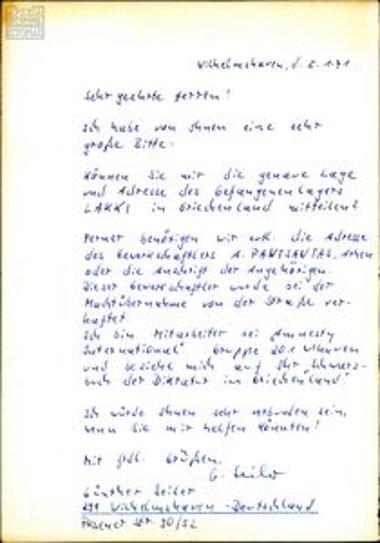 Wilhelmshaven, d. 5.1.71
Sehr geehrte Herren!
Ich habe von Ihnen eine sehr
große Bitte.
Können Sie mir die genaue Lage
und Adresse des Gefangenenlagers
LAKKI in Griechenland mitteilen?
Ferner benötigen wir evtl. die Adresse
des Gewerkschaftlers A. PANTSANTAS, Athen
oder die Anschrift der Angehörigen.
Dieser Gewerkschaftler wurde bei der
Machtübernahme von der Straße ver-
haftet.
Ich bin Mitarbeiter bei Amnesty
International Gruppe 201 W'haven
und beziehe mich auf Ihr "Schwarz-
buch der Diktatur in Griechenland"
Ich würde Ihnen sehr verbunden sein,
wenn Sie mir helfen könnten!
Mit frdl. Grüßen,
G. Seiler
Günther Seiler
Wilhelmshaven - Deutschland
Posener Str. 30/32